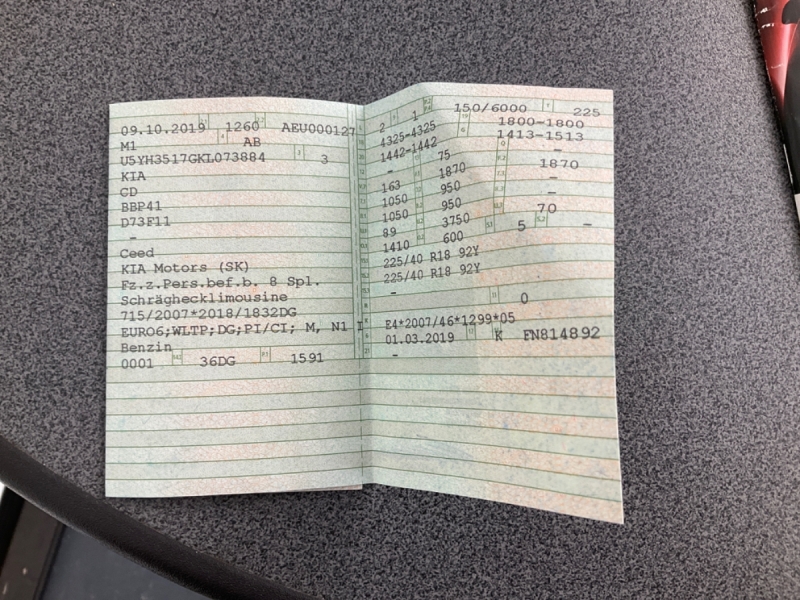 09.10.2019 1260 AEU000127
M1 AB
U5YH3517GKL073884 3
KIA
CD
BBP41
D73F11
–
Ceed
KIA Motors (SK)
Fz.z.Pers.bef.b. 8 Spl.
Schräghecklimousine
715/2007*2018/1832DG
EURO6;WLTP;DG;PI/CI; M, N1 I
Benzin
0001 36DG 1591
2 1 150/6000 225
4325-4325 1800-1800
1442-1442 1413-1513
– 75 –
163 1870 1870
1050 950 –
1050 950 –
89 3750 70
1410 600 5 –
225/40 R18 92Y
225/40 R18 92Y
– 0
E4*2007/46*1299*05
01.03.2019 K FN814892
–